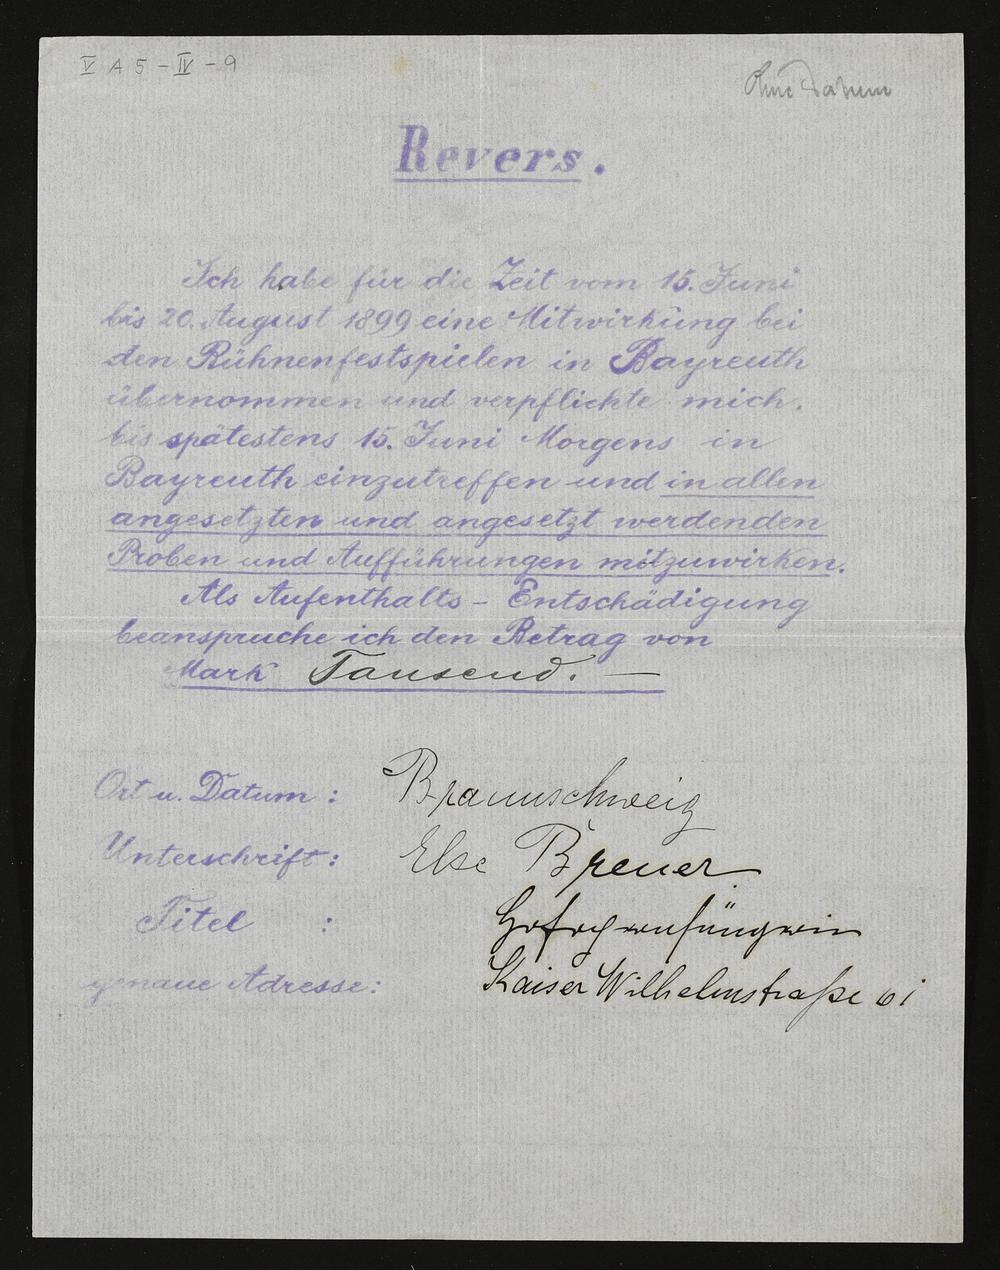 V A 5 - IV - 9
Ohne Datum
Revers.
Ich habe für die Zeit vom 15. Juni
bis 20. August 1899 eine Mitwirkung bei
den Bühnenfestspielen in Bayreuth
übernommen und verpflichte mich,
bis spätestens 15. Juni Morgens in
Bayreuth einzutreffen und in allen
angesetzten und angesetzt werdenden
Proben und Aufführungen mitzuwirken.
Als Aufenthalts - Entschädigung
beanspruche ich den Betrag von
Mark Tausend. —
Ort u. Datum : Braunschweig
Unterschrift: Else Breuer
Titel : Hofopernsängerin
genaue Adresse: Kaiser Wilhelmstraße 61